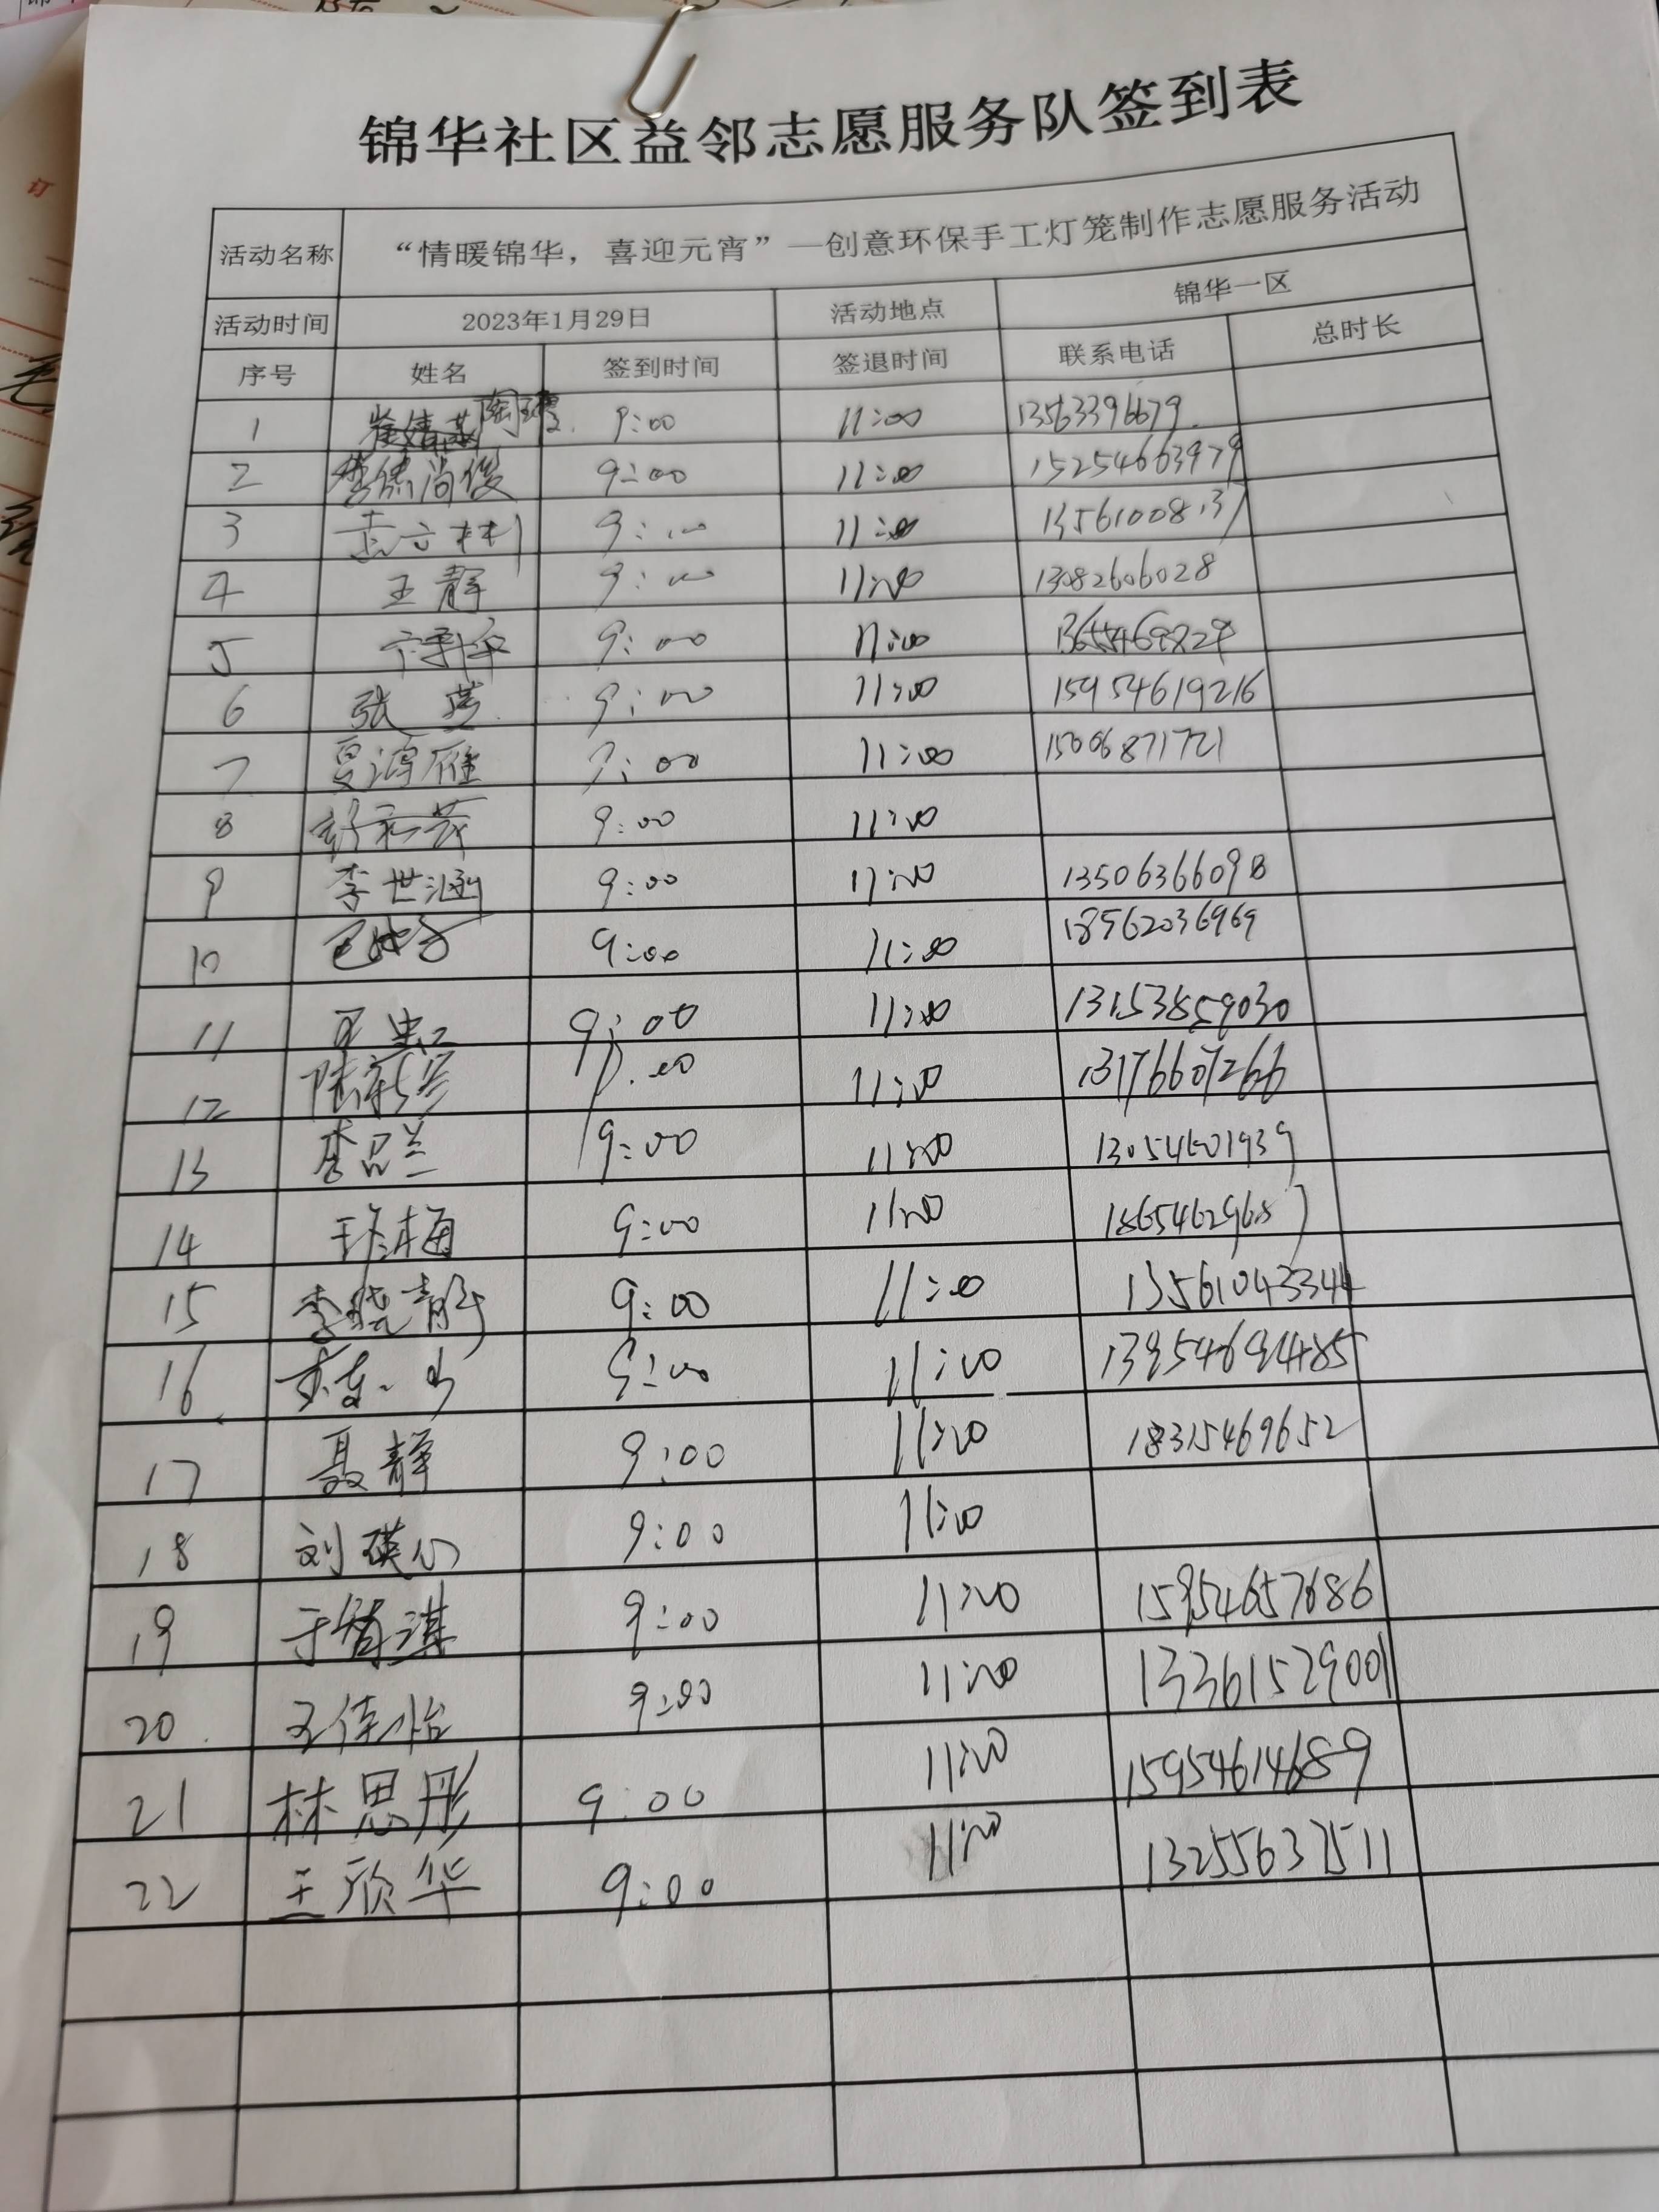 锦华社区益邻志愿服务队签到表
活动名称 “情暖锦华，喜迎元宵”—创意环保手工灯笼制作志愿服务活动
活动时间 2023年1月29日 活动地点 锦华一区
序号 姓名 签到时间 签退时间 联系电话 总时长
1 9:00 11:00 13563396679
2 9:00 11:00 15254663979
3 9:00 11:00
4 王静 9:00 11:00 13082606028
5 9:00 11:00
6 张 9:00 11:00 15954619216
7 夏海雁 9:00 11:00 15006871721
8 9:00 11:00
9 李世涵 9:00 11:00 13506366098
10 9:00 11:00 18562036969
11 9:00 11:00 13153859030
12 陆新兰 9:00 11:00 13176607266
13 李品兰 9:00 11:00 13054601939
14 9:00 11:00
15 李晓静 9:00 11:00 13561043344
16 9:00 11:00 13954694485
17 聂静 9:00 11:00 18315469652
18 刘瑛 9:00 11:00
19 于 淇 9:00 11:00 15954657686
20 王佳怡 9:00 11:00 13361529001
21 林思彤 9:00 11:00 15954614689
22 王欣华 9:00 11:00 13255637511